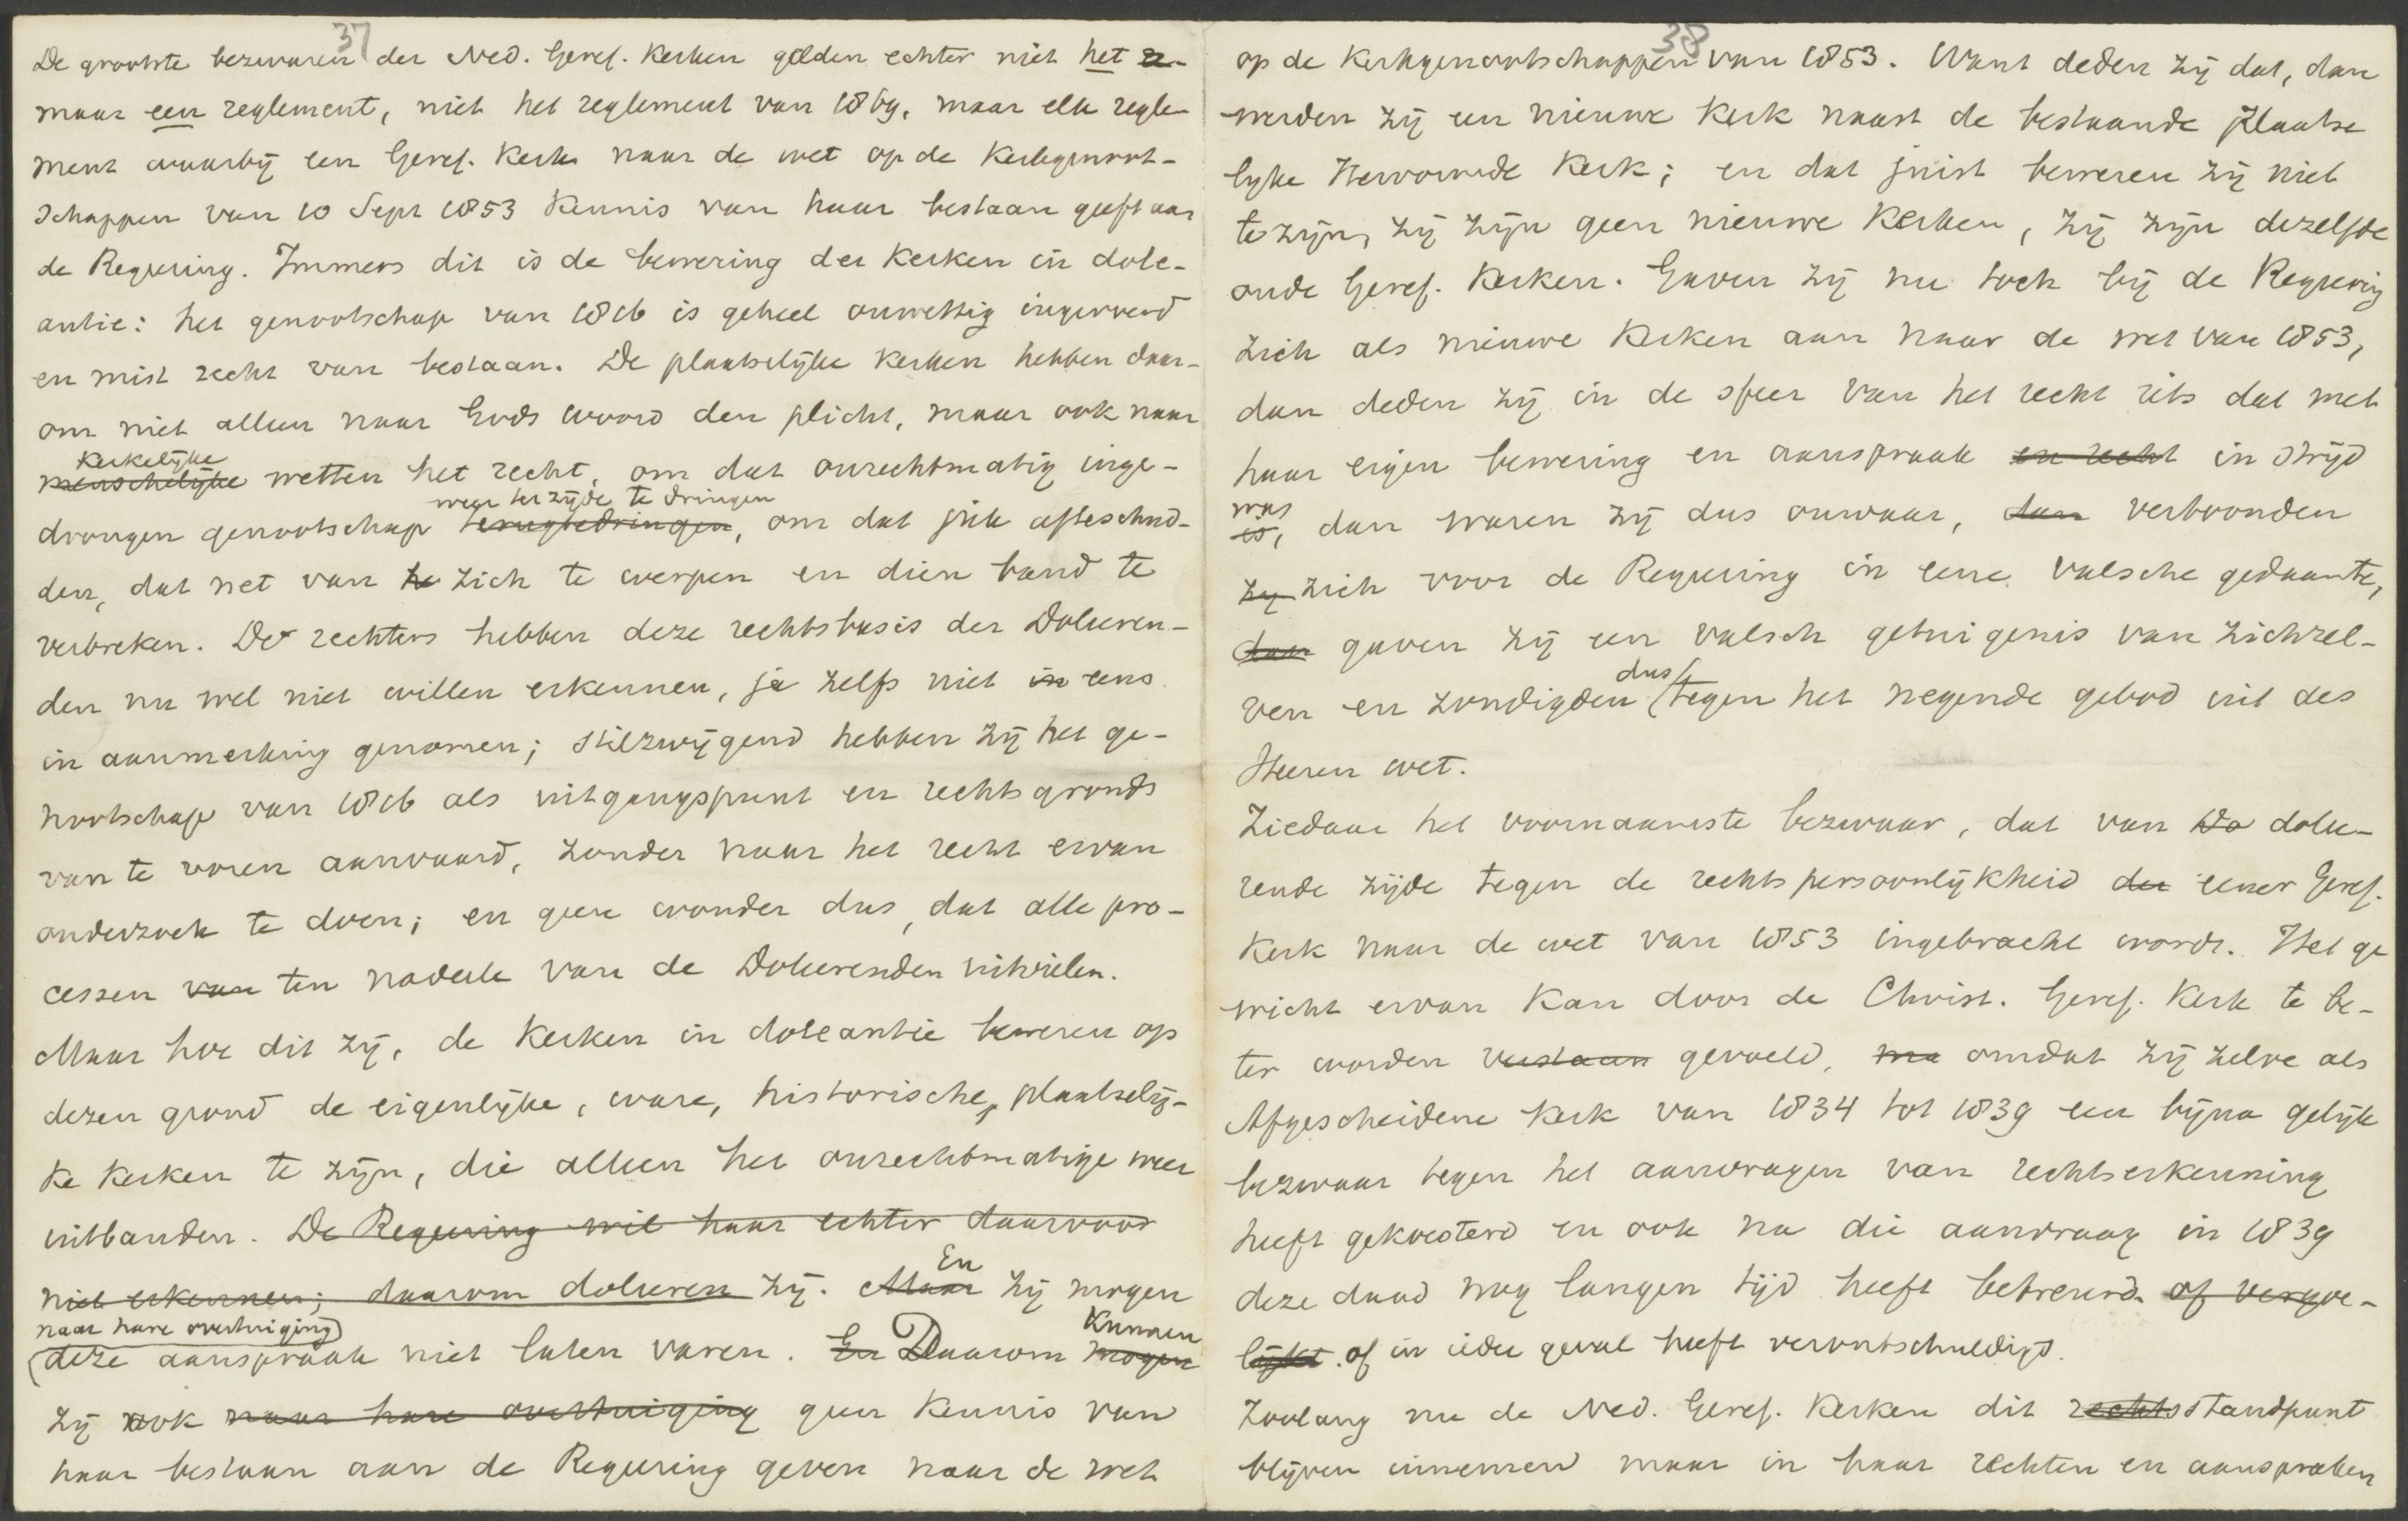 37
De grootste bezwaren der Ned. Geref. Kerken gelden echter niet het r-
maar een reglement, niet het reglement van 1869, maar elk regle-
ment waarbij een Geref. Kerk naar de wet op de Kerkgenoot-
schappen van 10 Sept 1853 Kennis van haar bestaan geeft aan
de Regeering. Immers dit is de bewering der Kerken in dole-
antie: het genootschap van 1816 is geheel onwettig ingevoerd
en mist recht van bestaan. De plaatselijke Kerken hebben daar-
om niet alleen naar Gods woord den plicht, maar ook naar
Kerkelijke
menschelijke wetten het recht, om dat onrechtmatig inge-
weer ter zijde te dringen
drongen genootschap terugtedringen, om dat juk afteschud-
den, dat net van he zich te werpen en dien band te
verbreken. De rechters hebben deze rechtsbasis der Doleeren-
den nu wel niet willen erkennen, ja zelfs niet in eens
in aanmerking genomen; stilzwijgend hebben zij het ge-
nootschap van 1816 als uitgangspunt en rechtsgronds
van te voren aanvaard, zonder naar het recht ervan
onderzoek te doen; en geen wonder dus, dat alle pro-
cessen van ten nadeele van de Doleerenden uitvielen.
Maar hoe dit zij, de Kerken in doleantie beweren op
dezen grond de eigenlijke, ware, historische, plaatselij-
ke Kerken te zijn, die alleen het onrechtmatige weer
uitbanden. De Regeering wil haar echter daarvoor
niet erkennen; daarom doleeren zij. Maar En zij mogen
naar hare overtuiging
deze aanspraak niet laten varen. En Daarom mogen Kunnen
zij ook naar hare overtuiging geen Kennis van
haar bestaan aan de Regeering geven naar de wet
38
op de Kerkgenootschappen van 1853. Want deden zij dat, dan
werden zij een nieuwe Kerk naast de bestaande plaatse
lijke Hervormde Kerk; en dat juist beweren zij niet
te zijn, zij zijn geen nieuwe Kerken, zij zijn dezelfde
oude Geref. Kerken. Gaven zij nu toch bij de Regeering
zich als nieuwe Kerken aan naar de wet van 1853,
dan deden zij in de sfeer van het recht iets dat met
haar eigen bewering en aanspraak en recht in strijd
was
is, dan waren zij dus onwaar, dan vertoonden
zij zich voor de Regeering in eene valsche gedaante,
dan gaven zij een valsch getuigenis van zichzel-
ven en zondigden dus tegen het negende gebod uit des
Heeren wet.
Ziedaar het voornaamste bezwaar, dat van Do dolee-
rende zijde tegen de rechtspersoonlijkheid der eener Geref.
Kerk naar de wet van 1853 ingebracht wordt. Het ge
wicht ervan Kan door de Christ. Geref. Kerk te be-
ter worden verstaan gevoeld, ma omdat zij zelve als
Afgescheidene Kerk van 1834 tot 1839 een bijna gelijk
bezwaar tegen het aanvragen van rechtserkenning
heeft gekoesterd en ook na die aanvraag in 1839
deze daad nog langen tijd heeft betreurd of vergoe-
lijkt of in ieder geval heeft verontschuldigd.
Zoolang nu de Ned. Geref. Kerken dit rechtsstandpunt
blijven innemen maar in haar rechten en aanspraken